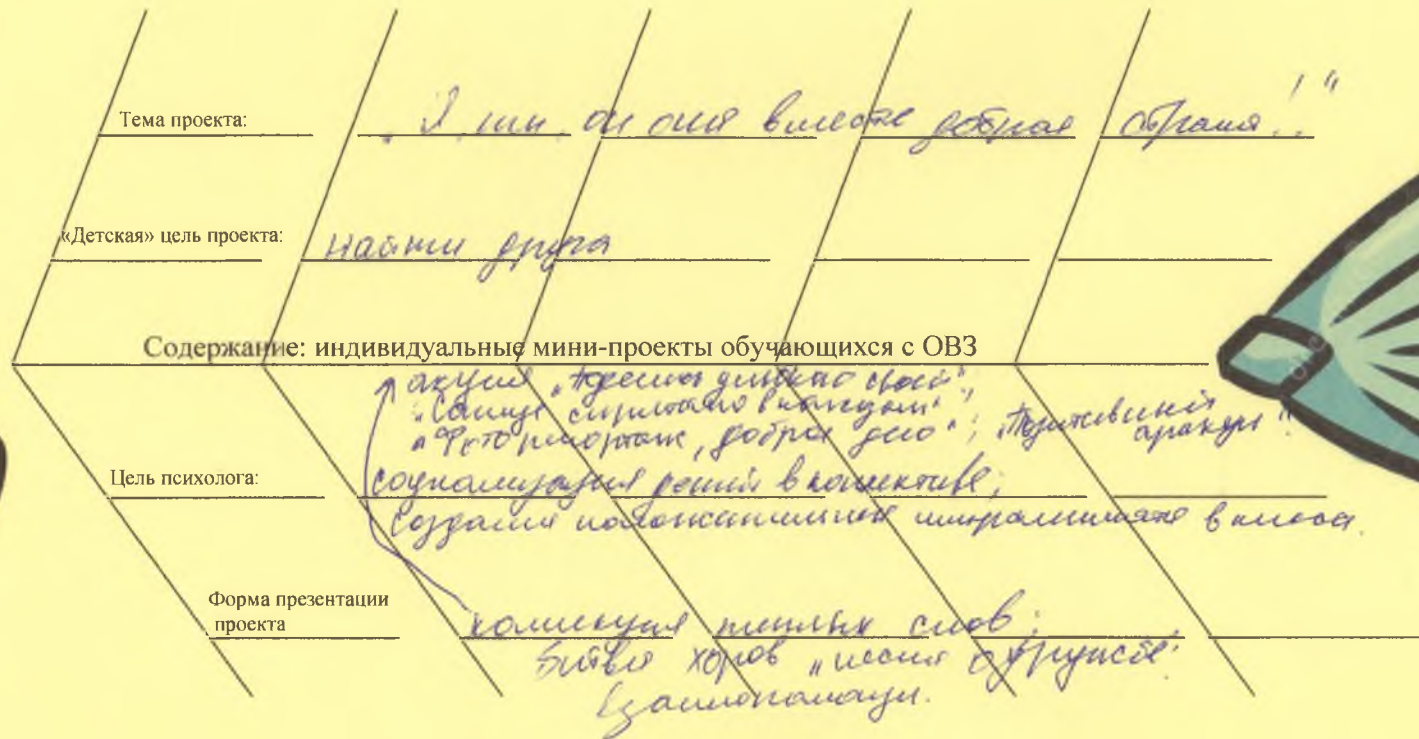 Тема проекта: „Я, ты, он, она вместе добрая страна!"
«Детская» цель проекта: найти друга
Содержание: индивидуальные мини-проекты обучающихся с ОВЗ
акция
„Солнце спрятано в каждом";
„Фоторепортаж, доброе дело";
Цель психолога: Социализация детей в коллективе;
Создание положительного микроклимата в классе.
Форма презентации
проекта
коллекция теплых слов;
Битва хоров „песни о дружбе.
Взаимопомощи.